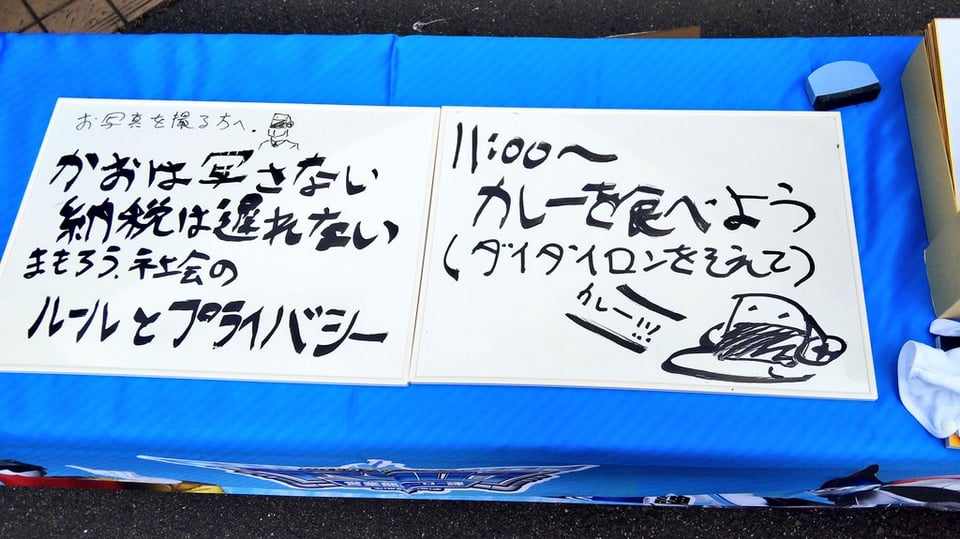 お写真を撮る方へ.
かおは写さない
納税は遅れない
まもろう.社会の
ルールとプライバシー
11:00〜
カレーを食べよう
(ダイダイロンをそえて)
カレー!!!